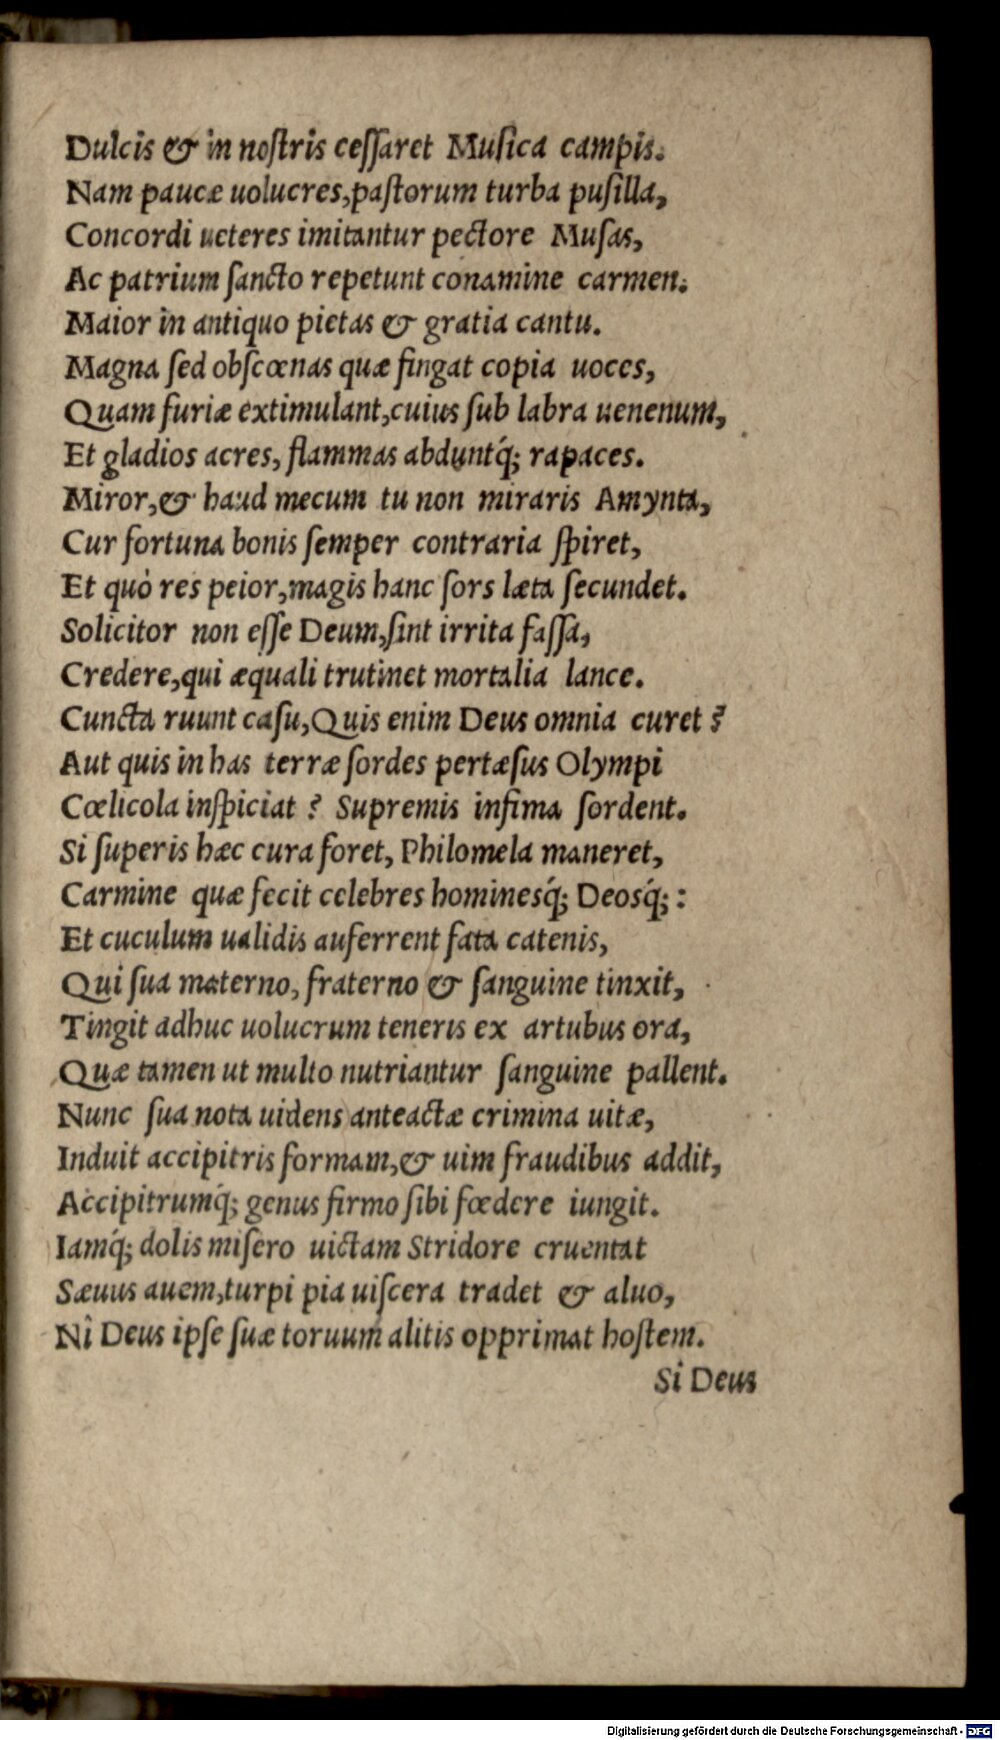 Dulcis & in noſtris ceſſaret Muſica campis.
Nam paucæ uolucres,paſtorum turba puſilla,
Concordi ueteres imitantur pectore Muſas,
Ac patrium ſancto repetunt conamine carmen.
Maior in antiquo pietas & gratia cantu.
Magna ſed obſcœnas quæ fingat copia uoces,
Quam furiæ extimulant,cuius ſub labra uenenum,
Et gladios acres, flammas abduntq́; rapaces.
Miror,& haud mecum tu non miraris Amynta,
Cur fortuna bonis ſemper contraria ſpiret,
Et quò res peior,magis hanc ſors læta ſecundet.
Solicitor non eſſe Deum,ſint irrita faſſa,
Credere,qui æquali trutinet mortalia lance.
Cuncta ruunt caſu,Quis enim Deus omnia curet ?
Aut quis in has terræ ſordes pertæſus Olympi
Cœlicola inſpiciat ? Supremis infima ſordent.
Si ſuperis hæc cura foret, Philomela maneret,
Carmine quæ fecit celebres hominesq́; Deosq́; :
Et cuculum ualidis auferrent fata catenis,
Qui ſua materno, fraterno & ſanguine tinxit,
Tingit adhuc uolucrum teneris ex artubus ora,
Quæ tamen ut multo nutriantur ſanguine pallent.
Nunc ſua nota uidens anteactæ crimina uitæ,
Induit accipitris formam,& uim fraudibus addit,
Accipitrumq́; genus firmo ſibi fœdere iungit.
Iamq́; dolis miſero uictam Stridore cruentat
Sæuus auem,turpi pia uiſcera tradet & aluo,
Ni Deus ipſe ſuæ toruum alitis opprimat hoſtem.
Si Deus
Digitalisierung gefördert durch die Deutsche Forschungsgemeinschaft - DFG